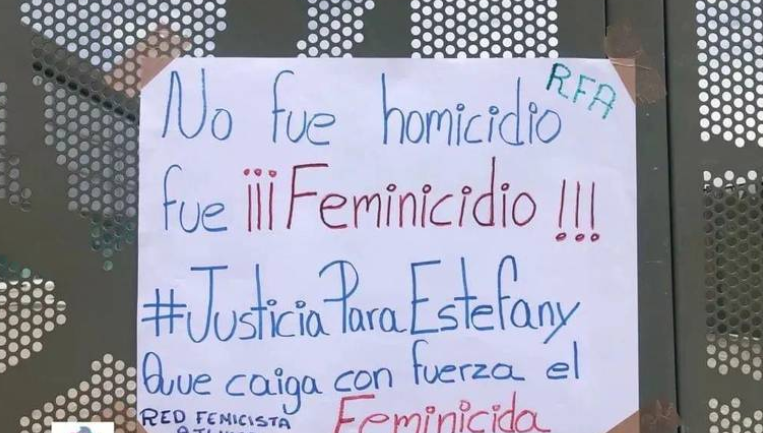 RFA
No fue homicidio
fue ¡¡¡Feminicidio!!!
#JusticiaParaEstefany
Que caiga con fuerza el
Feminicida
RED FEMICISTA